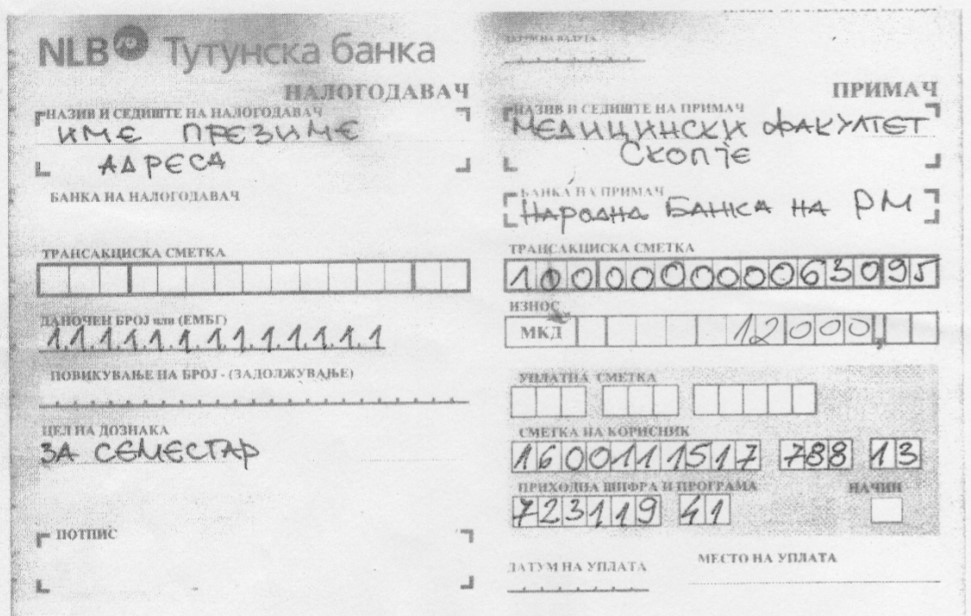 NLB Тутунска банка
НАЛОГОДАВАЧ
НАЗИВ И СЕДИШТЕ НА НАЛОГОДАВАЧ
ИМЕ ПРЕЗИМЕ
АДРЕСА
БАНКА НА НАЛОГОДАВАЧ
ТРАНСАКЦИСКА СМЕТКА
ДАНОЧЕН БРОЈ или (ЕМБГ)
1.1.1.1.1.1.1.1.1.1.1.1.1
ПОВИКУВАЊЕ НА БРОЈ - (ЗАДОЛЖУВАЊЕ)
ЦЕЛ НА ДОЗНАКА
ЗА СЕМЕСТАР
ПОТПИС
ДАТУМ НА ВАЛУТА
ПРИМАЧ
НАЗИВ И СЕДИШТЕ НА ПРИМАЧ
МЕДИЦИНСКИ ФАКУЛТЕТ
СКОПЈЕ
БАНКА НА ПРИМАЧ
НАРОДНА БАНКА НА РМ
ТРАНСАКЦИСКА СМЕТКА
100000000063095
ИЗНОС
МКД 12000,
УПЛАТНА СМЕТКА
СМЕТКА НА КОРИСНИК
1600111517 788 13
ПРИХОДНА ШИФРА И ПРОГРАМА НАЧИН
723119 41
ДАТУМ НА УПЛАТА МЕСТО НА УПЛАТА